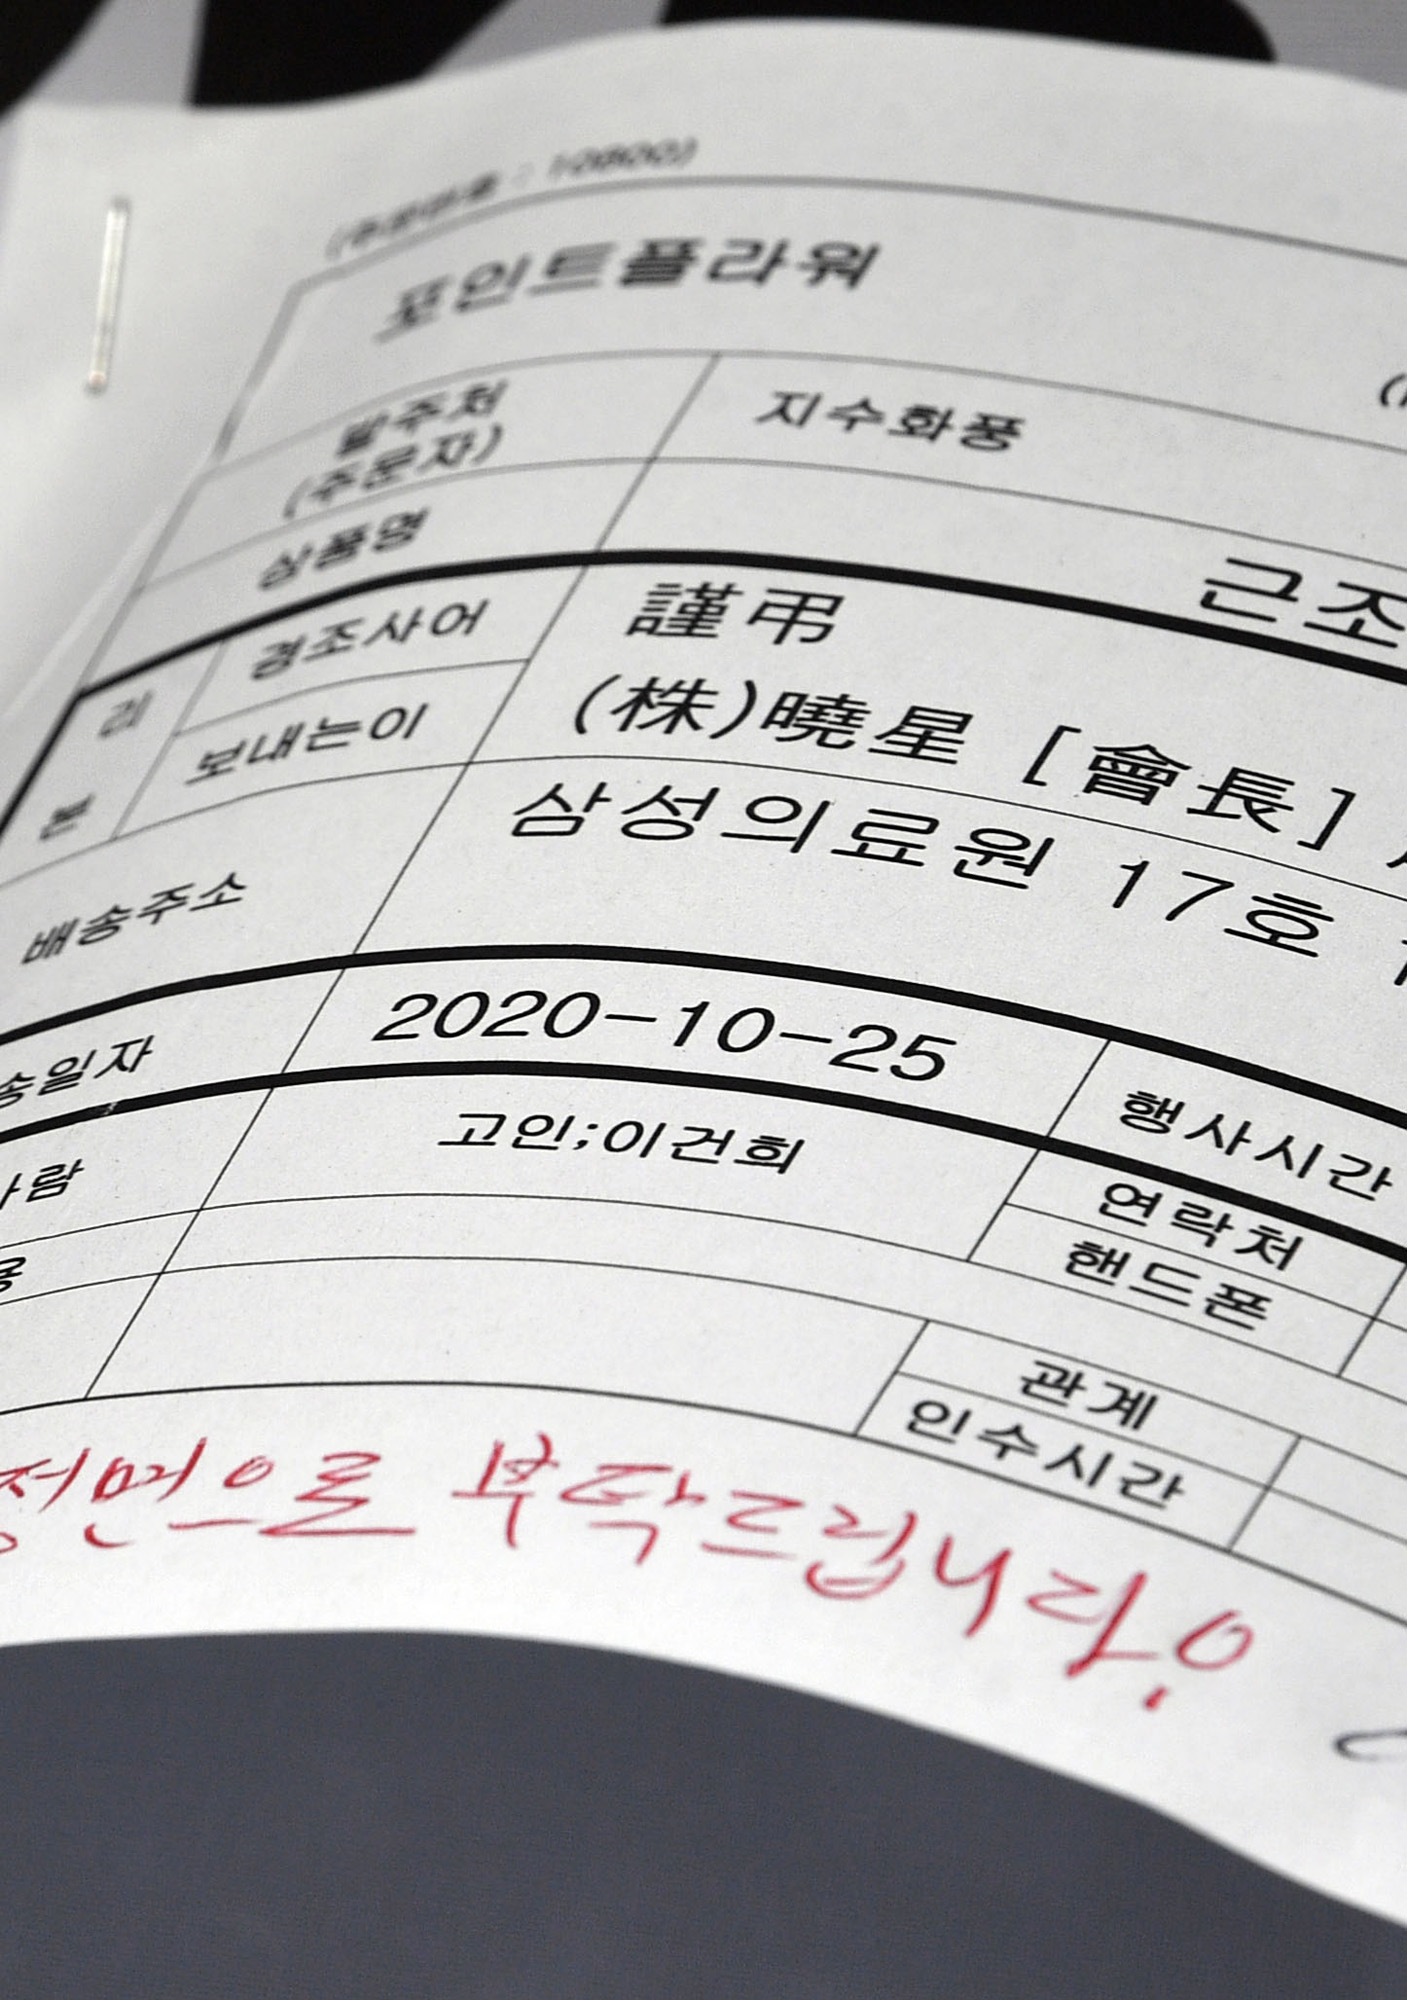 포인트플라워
발주처 지수화풍
(주문자)
상품명 근조
리본 경조사어 謹弔
보내는이 (株)曉星 [會長]
배송주소 삼성의료원 17호
송일자 2020-10-25 행사시간
사람 고인;이건희 연락처
핸드폰
관계
인수시간
정면으로 부탁드립니다!